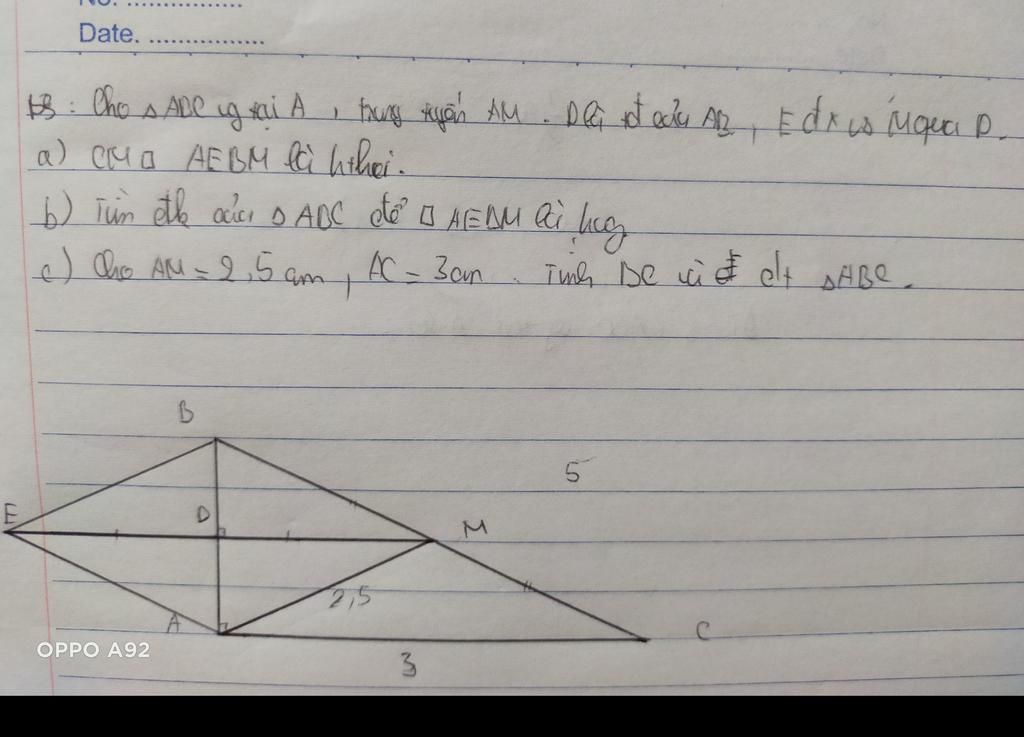 No. ................
Date. ................
B3: Cho △ABC vg tại A, trung tuyến AM. D là tđ của AB, E đx vs M qua D.
a) CM □ AEBM là hthoi.
b) Tìm đk của △ABC để □ AEBM là hv
c) Cho AM = 2,5 cm, AC = 3cm. Tính BC và dt △ABC.
B
5
E
D
M
2,5
A
C
3
OPPO A92